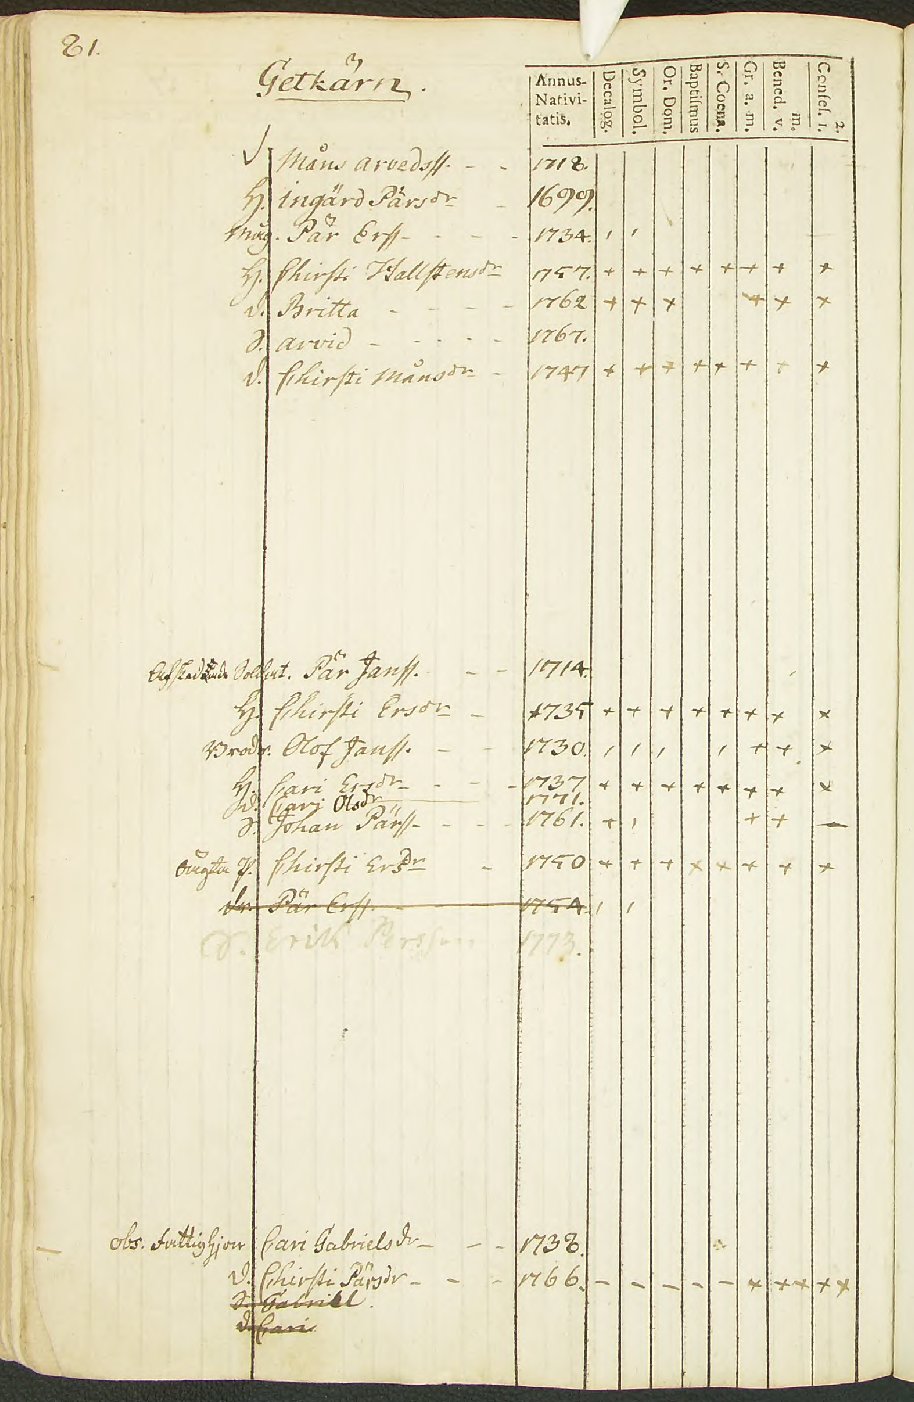 81.
Getkärn.
Annus Nativitatis. Decalog. Symbol. Or. Dom. Baptismus S. Coena. Gr. a. m. Bened. v. m. Confes. 1. 2.
Måns Arvedss. - - 1718.
H. Ingärd Pärsdr - 1699.
Måg. Pär Erss - - - - 1734. , ,
H. Chirsti Hallstensdr 1757. + + + + + + + +
d. Britta - - - - 1762 + + + + + +
S. Arvid - - - - - 1767.
d. Chirsti Månsdr - 1747 + + + + + + + +
Afskedade Soldat. Pär Janss. - - 1714.
H. Chirsti Ersdr - 1735 + + + + + + + +
Brodr. Olof Janss. - - 1730. , , , , + + +
H. Cari Ersdr - - - 1737 + + + + + + + +
d. Cari Olsdr 1771.
S. Johan Pärss - - - 1761. + , + + -
P. Chirsti Ersdr - 1750 + + + + + + + +
dr. Pär Erss. 1754. , ,
S. Erik Persson 1773.
obs. Cari Gabrielsdr - - - 1738.
d. Chirsti Pärsdr - - - 1766. - - - - - + + + + +
S. Gabriel.
d. Cari